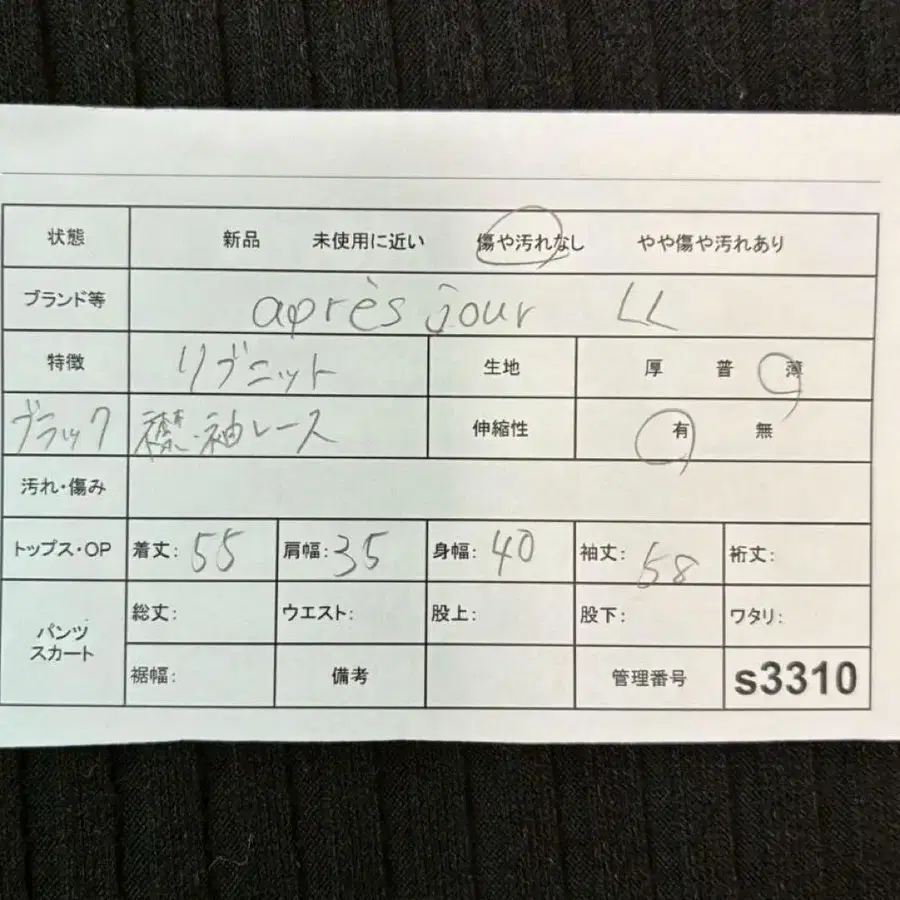 状態 新品 未使用に近い 傷や汚れなし やや傷や汚れあり
ブランド等 après jour LL
特徴 リブニット 生地 厚 普 薄
ブラック 襟・袖レース 伸縮性 有 無
汚れ・傷み
トップス・OP 着丈: 55 肩幅: 35 身幅: 40 袖丈: 58 裄丈:
パンツ スカート 総丈: ウエスト: 股上: 股下: ワタリ:
裾幅: 備考 管理番号 s3310